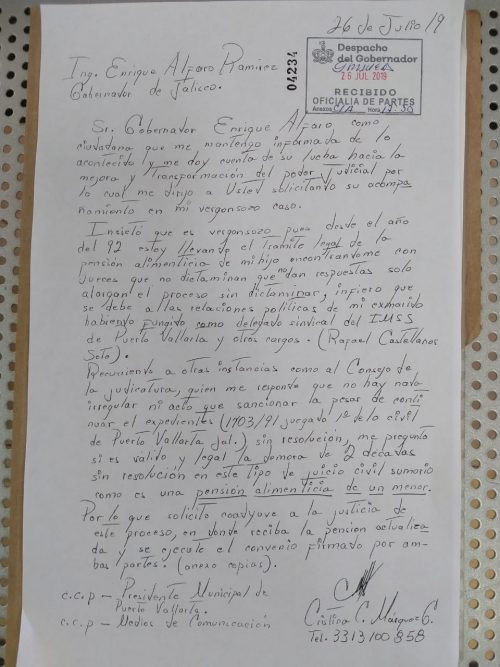 26 de Julio/19
04234
Despacho
del Gobernador
26 JUL 2019
RECIBIDO
OFICIALIA DE PARTES
Anexos Hora
Ing. Enrique Alfaro Ramirez
Gobernador de Jalisco.
Sr. Gobernador Enrique Alfaro, como
ciudadana que me mantengo informada de lo
acontecido y me doy cuenta de su lucha hacia la
mejora y Transformación del poder judicial por
la cual me dirijo a Usted solicitando su acompa
ñamiento en mi vergonsozo caso.
Insisto que es vergonsozo pues desde el año
del 92 estoy llevando el Tramite legal de la
pensión alimenticia de mi hijo encontrandome con
jueces que no dictaminan que no dan respuestas solo
alargan el proceso sin dictaminar, infiero que
se debe a las relaciones politicas de mi exmarido
habiendo fungido como delegado sindical del IMSS
de Puerto Vallarta y otros cargos. (Rafael Castellanos
Soto).
Recurriendo a otras instancias como al Consejo de
la judicatura, quien me responde que no hay nada
irregular ni acto que sancionar la pesar de conti
nuar el expedientes (1703/91 jurgado 1º de lo civil
de Puerto Vallarta Jal.) sin resolución, me pregunto
si es valido y legal la demora de 2 decadas
sin resolución en este tipo de juicio civil sumario
como es una pensión alimenticia de un menor.
Por lo que solicito coadyuve a la justicia de
este proceso, en donde reciba la pension actualiza
da y se ejecute el convenio firmado por am-
bas partes. (anexo copias).
c.c.p – Presidente Municipal de
Puerto Vallarta.
c.c.p – Medios de Comunicación
Cristina C. Márquez G.
Tel. 3313100858